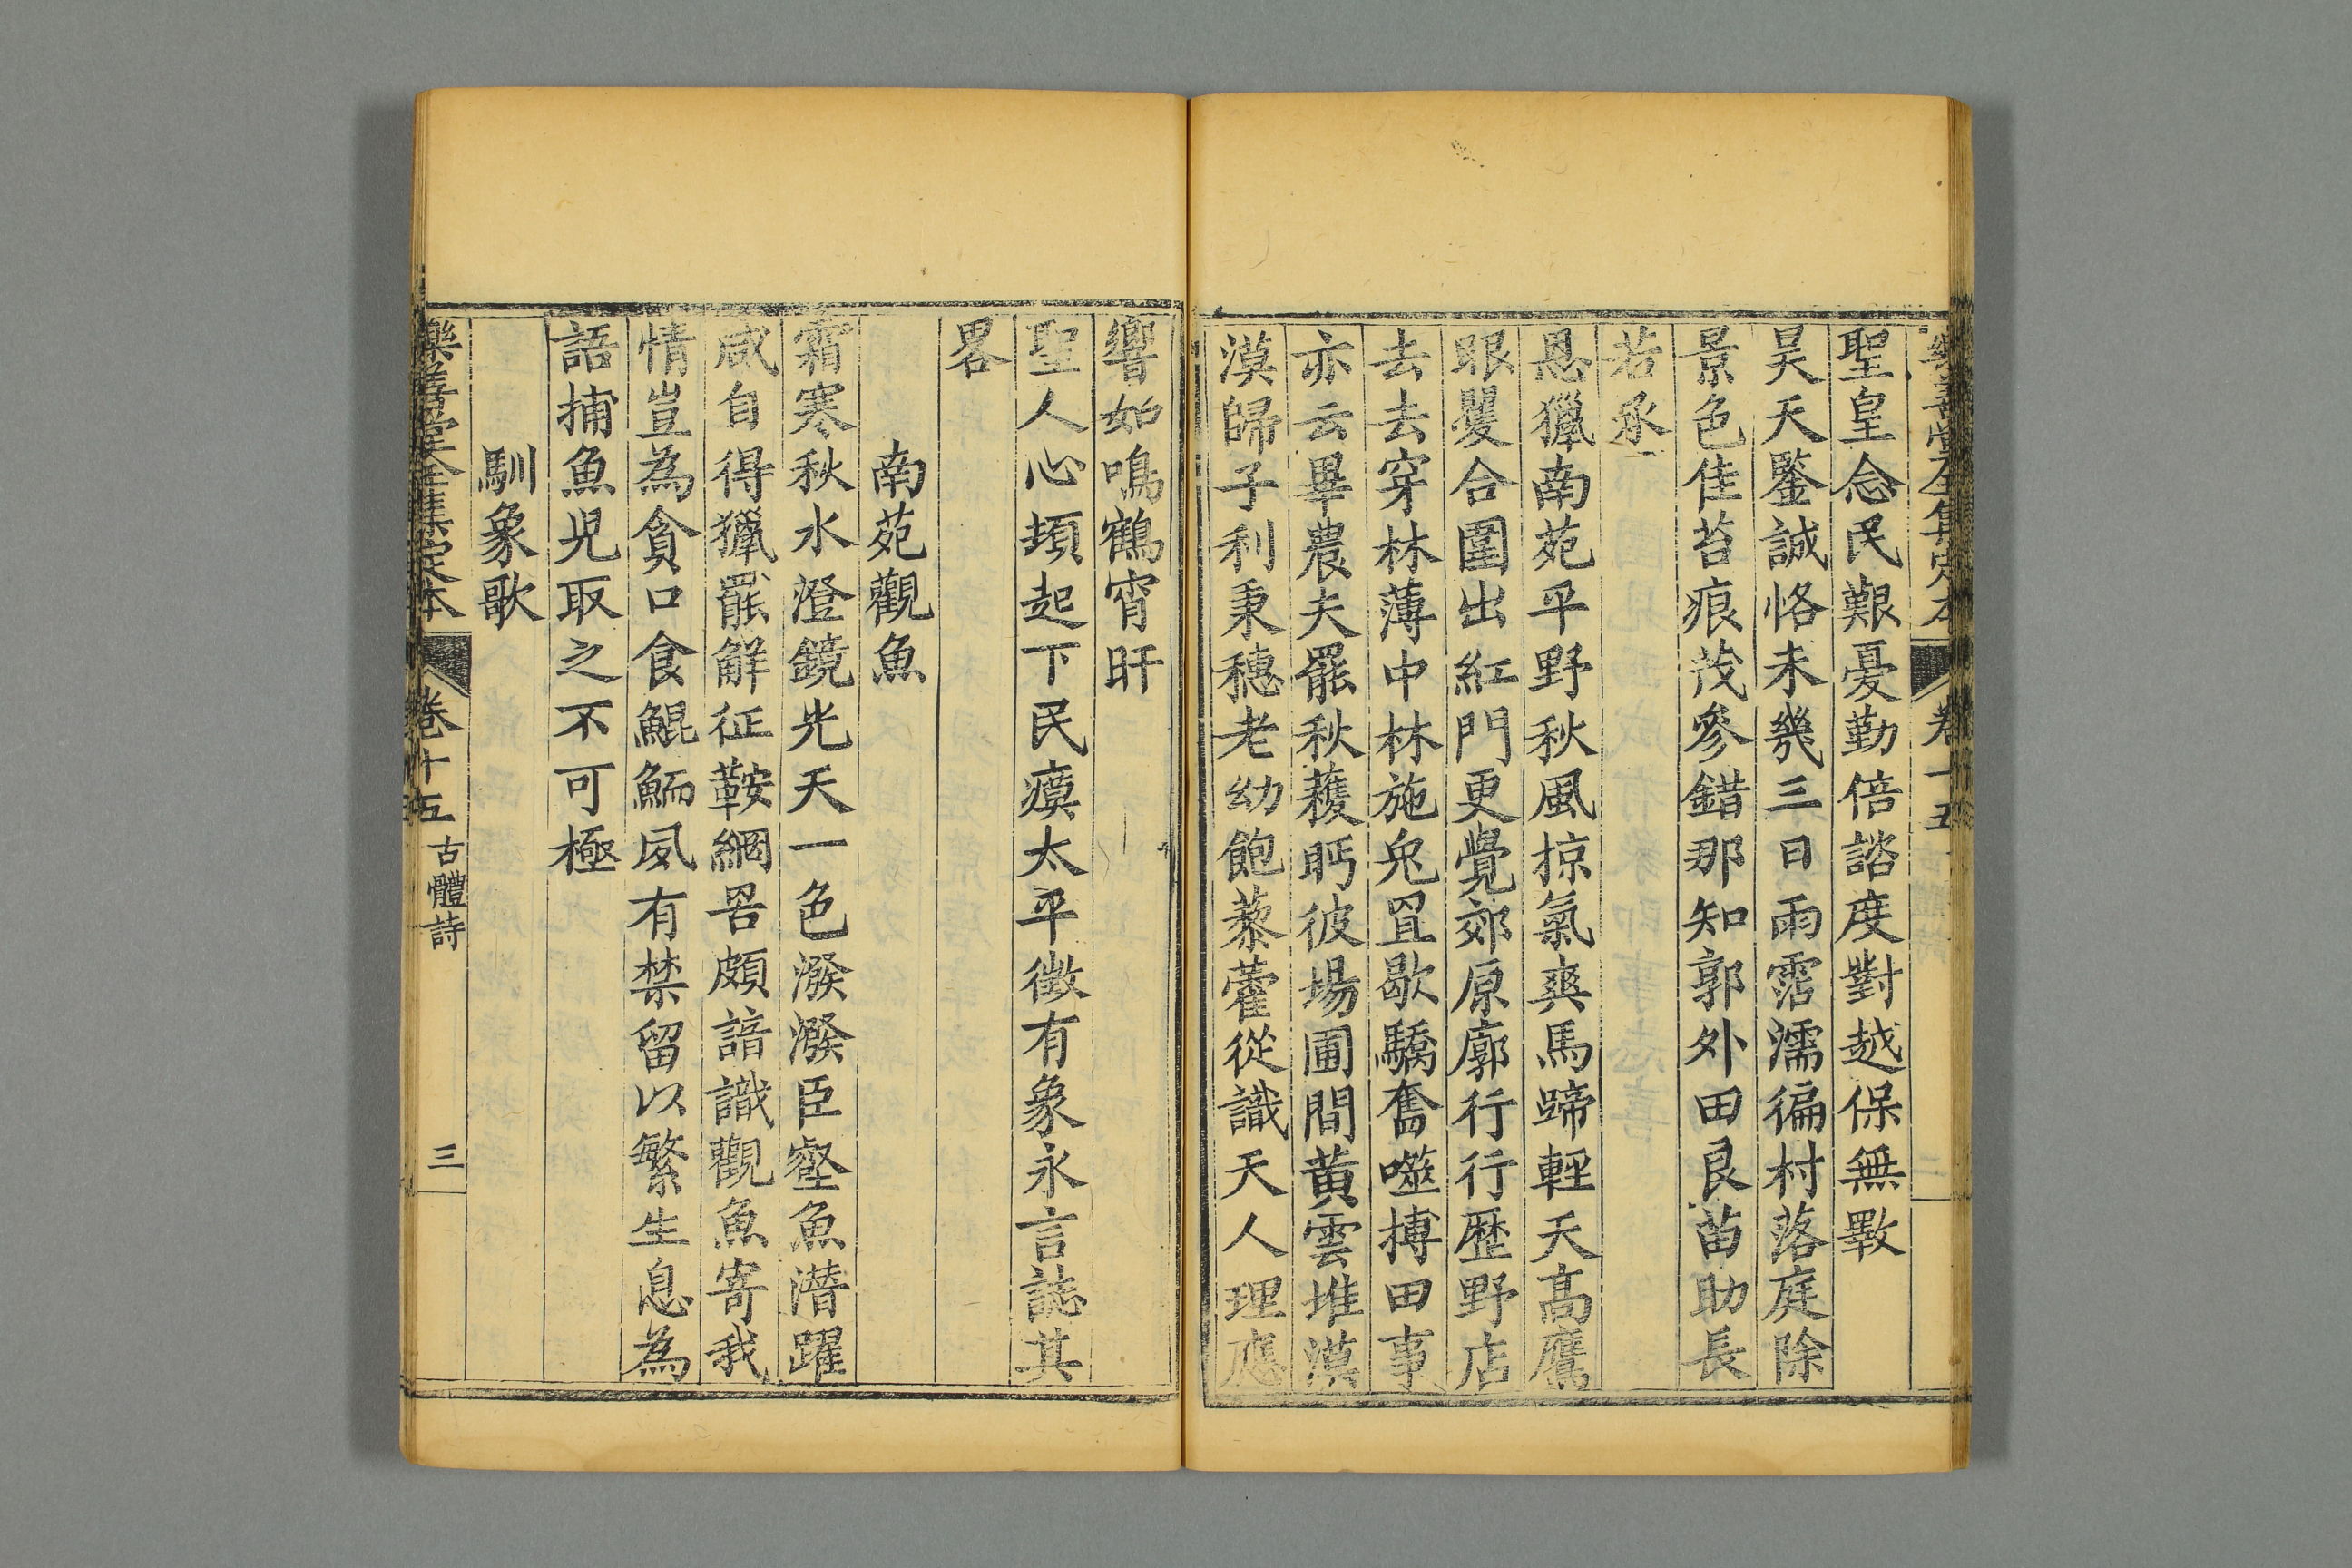 樂善堂全集定本 卷十五
聖皇念民艱憂勤倍諮度對越保無斁
昊天鑒誠恪未幾三日雨霑濡徧村落庭除
景色佳苔痕茂參錯那知郭外田艮苗助長
若承
恩獵南苑平野秋風掠氣爽馬蹄輕天高鷹
眼矍合圍出紅門更覺郊原廓行行歷野店
去去穿林薄中林施兔罝歇驕奮噬搏田事
亦云畢農夫罷秋穫眄彼場圃間黄雲堆漠
漠歸子利秉穗老幼飽藜藿從識天人理應
響如鳴鶴宵旰
聖人心頓起下民瘼太平徵有象永言誌其
畧
南苑觀魚
霜寒秋水澄鏡光天一色潑潑臣壑魚潛躍
咸自得獵罷解征鞍網罟頗諳識觀魚寄我
情豈為貪口食鯤鮞夙有禁留以繁生息為
語捕魚兒取之不可極
馴象歌
樂善堂全集定本 卷十五 古體詩 三